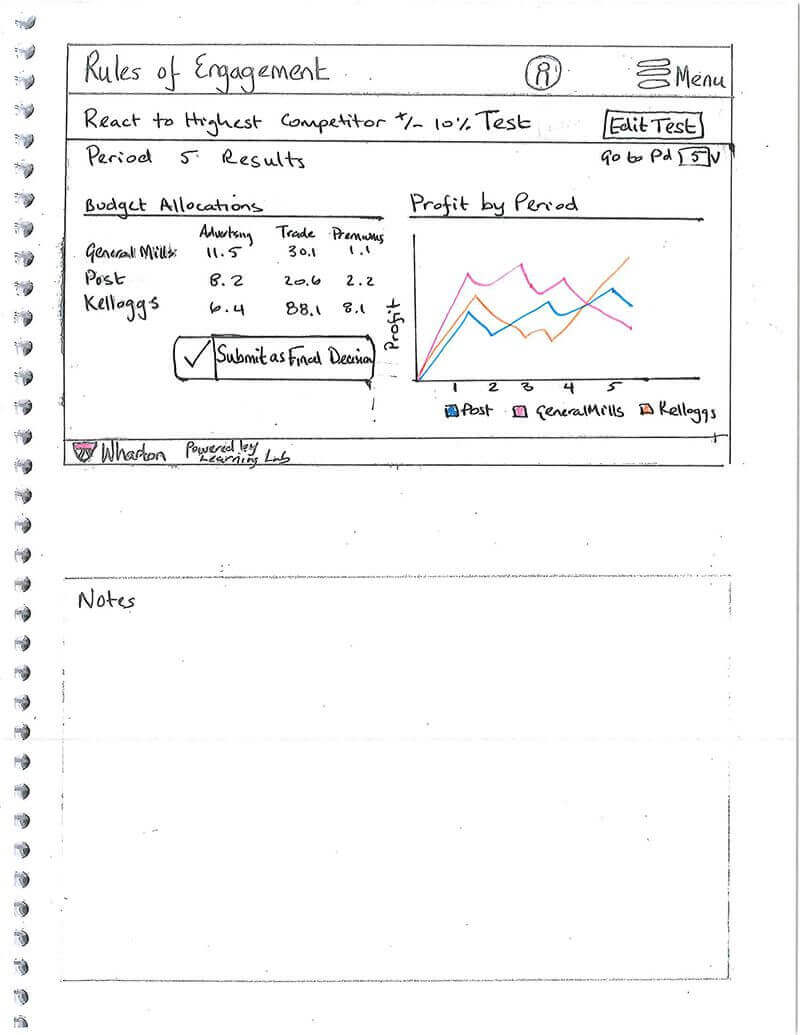 Rules of Engagement
Menu
React to Highest Competitor +/- 10% Test
Edit Test
Period 5 Results
Go to Pd 5 v
Budget Allocations
Advertising Trade Premiums
General Mills 11.5 30.1 1.1
Post 8.2 20.6 2.2
Kelloggs 6.4 88.1 8.1
Submit as Final Decision
Profit by Period
Profit
1 2 3 4 5
Post General Mills Kelloggs
Wharton Powered by
Learning Lab
Notes